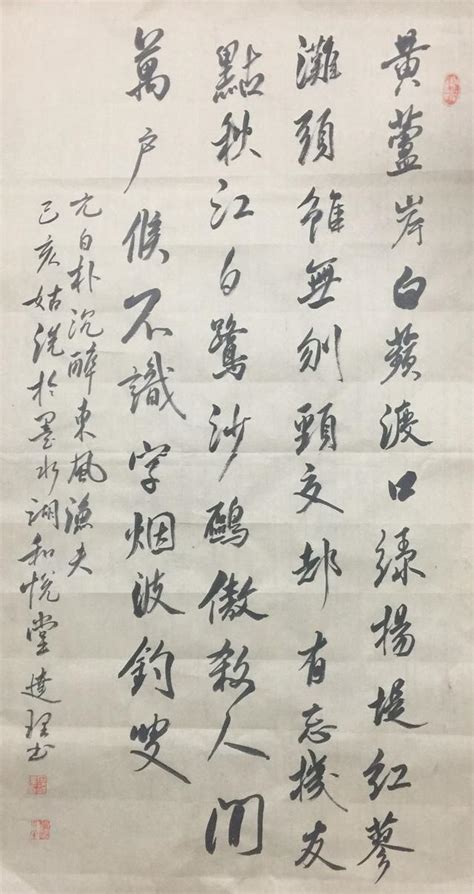 黃蘆岸白蘋渡口綠楊堤紅蓼
灘頭雖無刎頸交却有忘機友
點秋江白鷺沙鷗傲殺人間
萬户候不識字烟波釣叟
元白朴沉醉東風漁夫
己亥姑洗於墨水湖和悅堂達理书